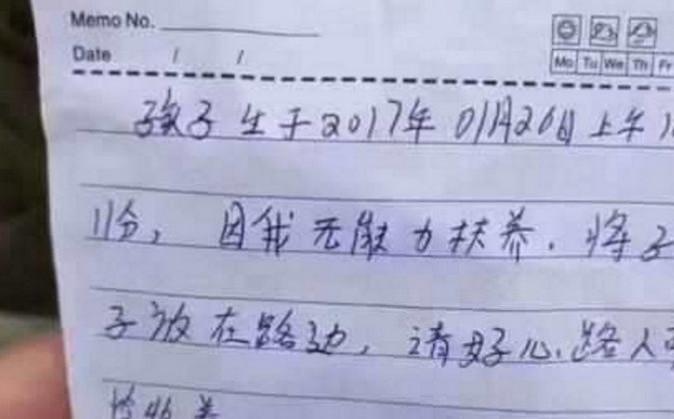 Memo No.
Date / /
Mo Tu We Th Fr
孩子生于2017年01月20日上午1
11分，因我无能力扶养.将
子放在路边，请好心.路人